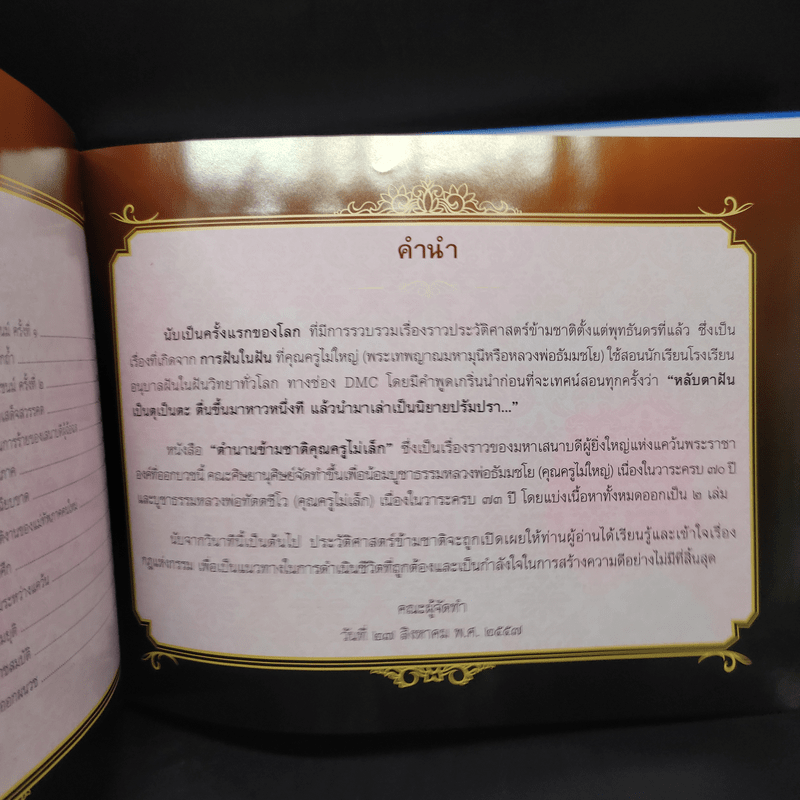 นย์ ครั้งที่ ๑
กถ้ำ
ชนม์ ครั้งที่ ๒
เสด็จสวรรคต
ภาค
นียบขาด
ติงานของแม่ทัพภาคคนใหม่
ศึก
ประหว่างแคว้น
มบุติ
าชสมบัติ
ออกผนวช
คำนำ
นับเป็นครั้งแรกของโลก ที่มีการรวบรวมเรื่องราวประวัติศาสตร์ข้ามชาติตั้งแต่พุทธันดรที่แล้ว ซึ่งเป็น
เรื่องที่เกิดจาก การฝันในฝัน ที่คุณครูไม่ใหญ่ (พระเทพญาณมหามุนีหรือหลวงพ่อธัมมชโย) ใช้สอนนักเรียนโรงเรียน
อนุบาลฝันในฝันวิทยาทั่วโลก ทางช่อง DMC โดยมีคำพูดเกริ่นนำก่อนที่จะเทศน์สอนทุกครั้งว่า “หลับตาฝัน
เป็นตุเป็นตะ ตื่นขึ้นมาหาวหนึ่งที แล้วนำมาเล่าเป็นนิยายปรัมปรา...”
หนังสือ “ตำนานข้ามชาติคุณครูไม่เล็ก” ซึ่งเป็นเรื่องราวของมหาเสนาบดีผู้ยิ่งใหญ่แห่งแคว้นพระราชา
องค์ที่ออกบวชนี้ คณะศิษยานุศิษย์จัดทำขึ้นเพื่อน้อมบูชาธรรมหลวงพ่อธัมมชโย (คุณครูไม่ใหญ่) เนื่องในวาระครบ ๗๐ ปี
และบูชาธรรมหลวงพ่อทัตตชีโว (คุณครูไม่เล็ก) เนื่องในวาระครบ ๗๓ ปี โดยแบ่งเนื้อหาทั้งหมดออกเป็น ๒ เล่ม
นับจากวินาทีนี้เป็นต้นไป ประวัติศาสตร์ข้ามชาติจะถูกเปิดเผยให้ท่านผู้อ่านได้เรียนรู้และเข้าใจเรื่อง
กฎแห่งกรรม เพื่อเป็นแนวทางในการดำเนินชีวิตที่ถูกต้องและเป็นกำลังใจในการสร้างความดีอย่างไม่มีที่สิ้นสุด
คณะผู้จัดทำ
วันที่ ๒๗ สิงหาคม พ.ศ. ๒๕๕๗